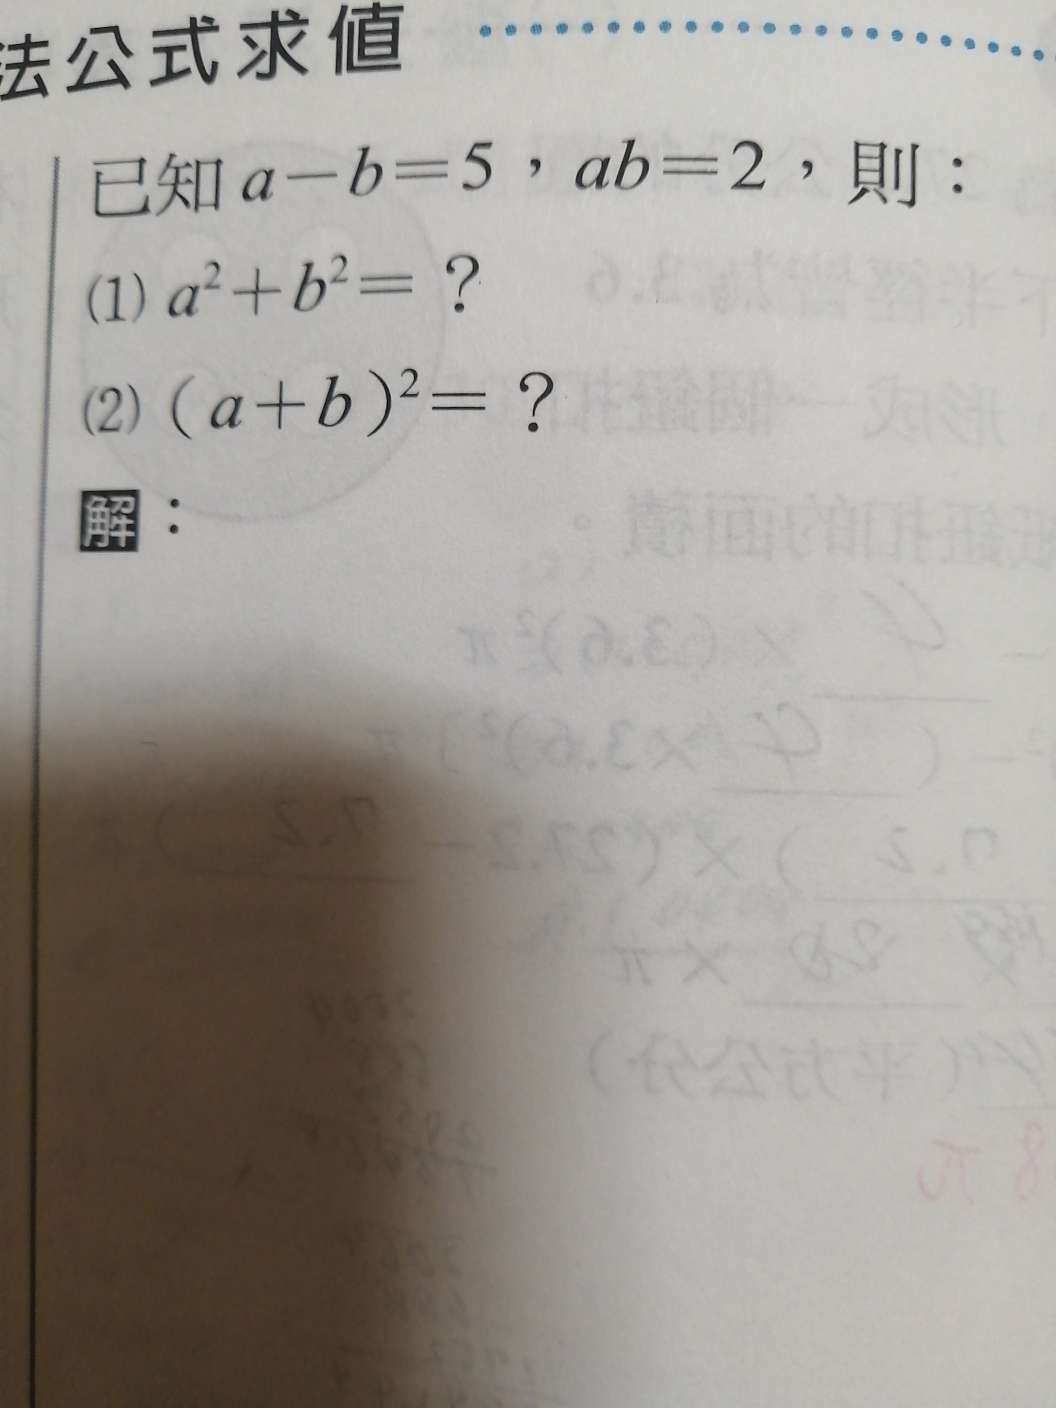 法公式求值
已知 a－b＝5，ab＝2，則：
(1) a²＋b²＝？
(2) (a＋b)²＝？
解：